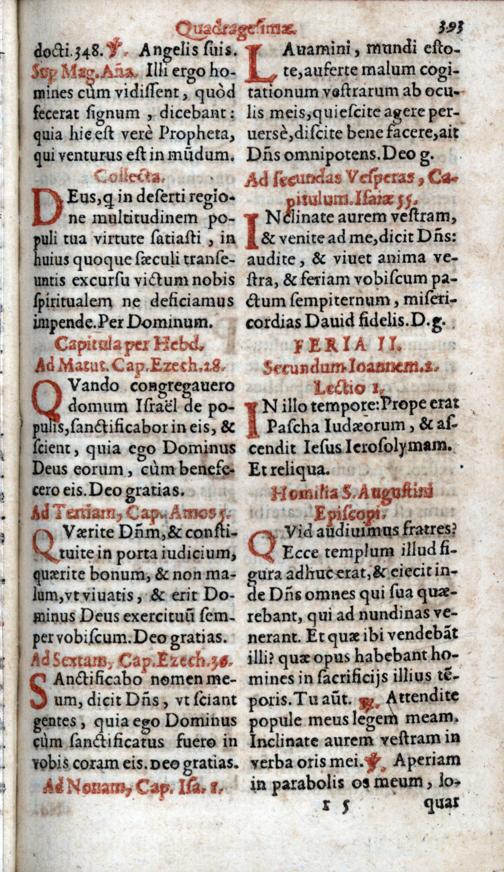 Quadragesimæ. 393
docti. 348. ℣. Angelis suis.
Sup Mag. Aña. Illi ergo ho-
mines cùm vidissent, quòd
fecerat signum, dicebant:
quia hic est verè Propheta,
qui venturus est in mūdum.
Collecta.
DEus, q in deserti regio-
ne multitudinem po-
puli tua virtute satiasti, in
huius quoque sæculi transe-
untis excursu victum nobis
spiritualem ne deficiamus
impende. Per Dominum.
Capitula per Hebd.
Ad Matut. Cap. Ezech. 28.
QVando congregauero
domum Israël de po-
pulis, sanctificabor in eis, &
scient, quia ego Dominus
Deus eorum, cùm benefe-
cero eis. Deo gratias.
Ad Tertiam, Cap. Amos 5.
QVærite Dñm, & consti-
tuite in porta iudicium,
quærite bonum, & non ma-
lum, vt viuatis, & erit Do-
minus Deus exercituū sem-
per vobiscum. Deo gratias.
Ad Sextam, Cap. Ezech. 36.
SAnctificabo nomen me-
um, dicit Dñs, vt sciant
gentes, quia ego Dominus
cùm sanctificatus fuero in
vobis coram eis. Deo gratias.
Ad Nonam, Cap. Isa. 1.
LAuamini, mundi esto-
te, auferte malum cogi-
tationum vestrarum ab ocu-
lis meis, quiescite agere per-
uersè, discite bene facere, ait
Dñs omnipotens. Deo g.
Ad secundas Vesperas, Ca-
pitulum. Isaiæ 55.
INclinate aurem vestram,
& venite ad me, dicit Dñs:
audite, & viuet anima ve-
stra, & feriam vobiscum pa-
ctum sempiternum, miseri-
cordias Dauid fidelis. D. g.
FERIA II.
Secundum Ioannem. 2.
Lectio 1.
IN illo tempore: Prope erat
Pascha Iudæorum, & as-
cendit Iesus Ierosolymam.
Et reliqua.
Homilia S. Augustini
Episcopi.
QVid audiuimus fratres?
Ecce templum illud fi-
gura adhuc erat, & eiecit in-
de Dñs omnes qui sua quæ-
rebant, qui ad nundinas ve-
nerant. Et quæ ibi vendebāt
illi? quæ opus habebant ho-
mines in sacrificijs illius tē-
poris. Tu aūt. ℟. Attendite
popule meus legem meam.
Inclinate aurem vestram in
verba oris mei. ℣. Aperiam
in parabolis os meum, lo-
r 5 quar